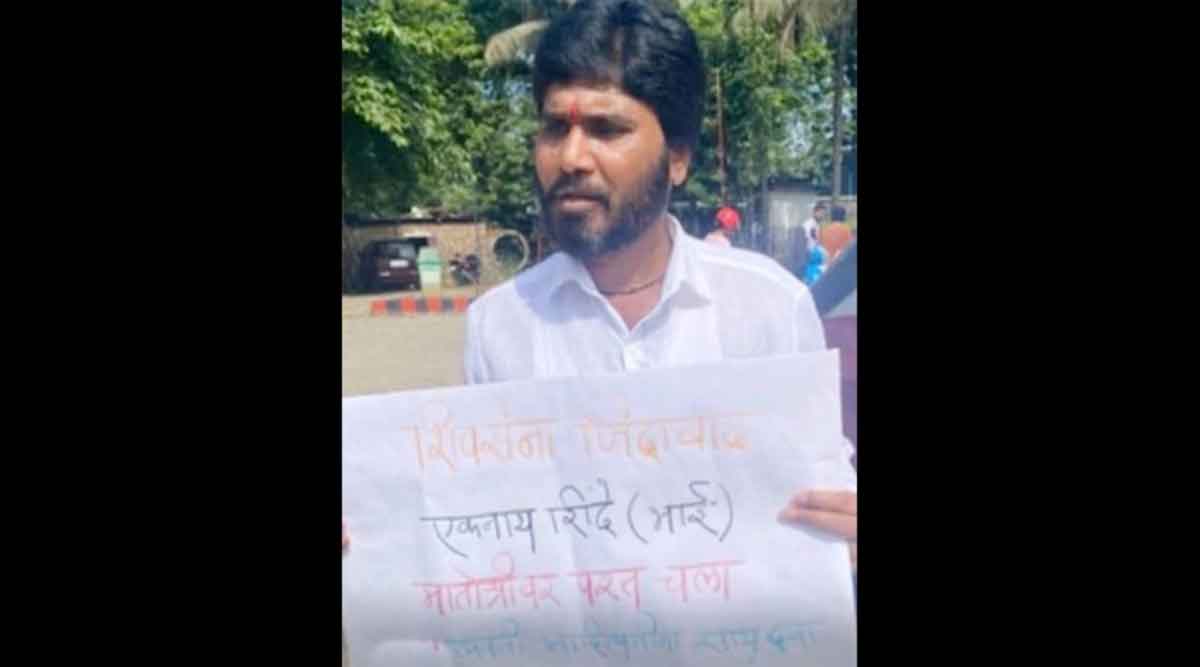 शिवसेना जिंदाबाद
एकनाथ शिंदे (भाई)
मातोश्रीवर परत चला